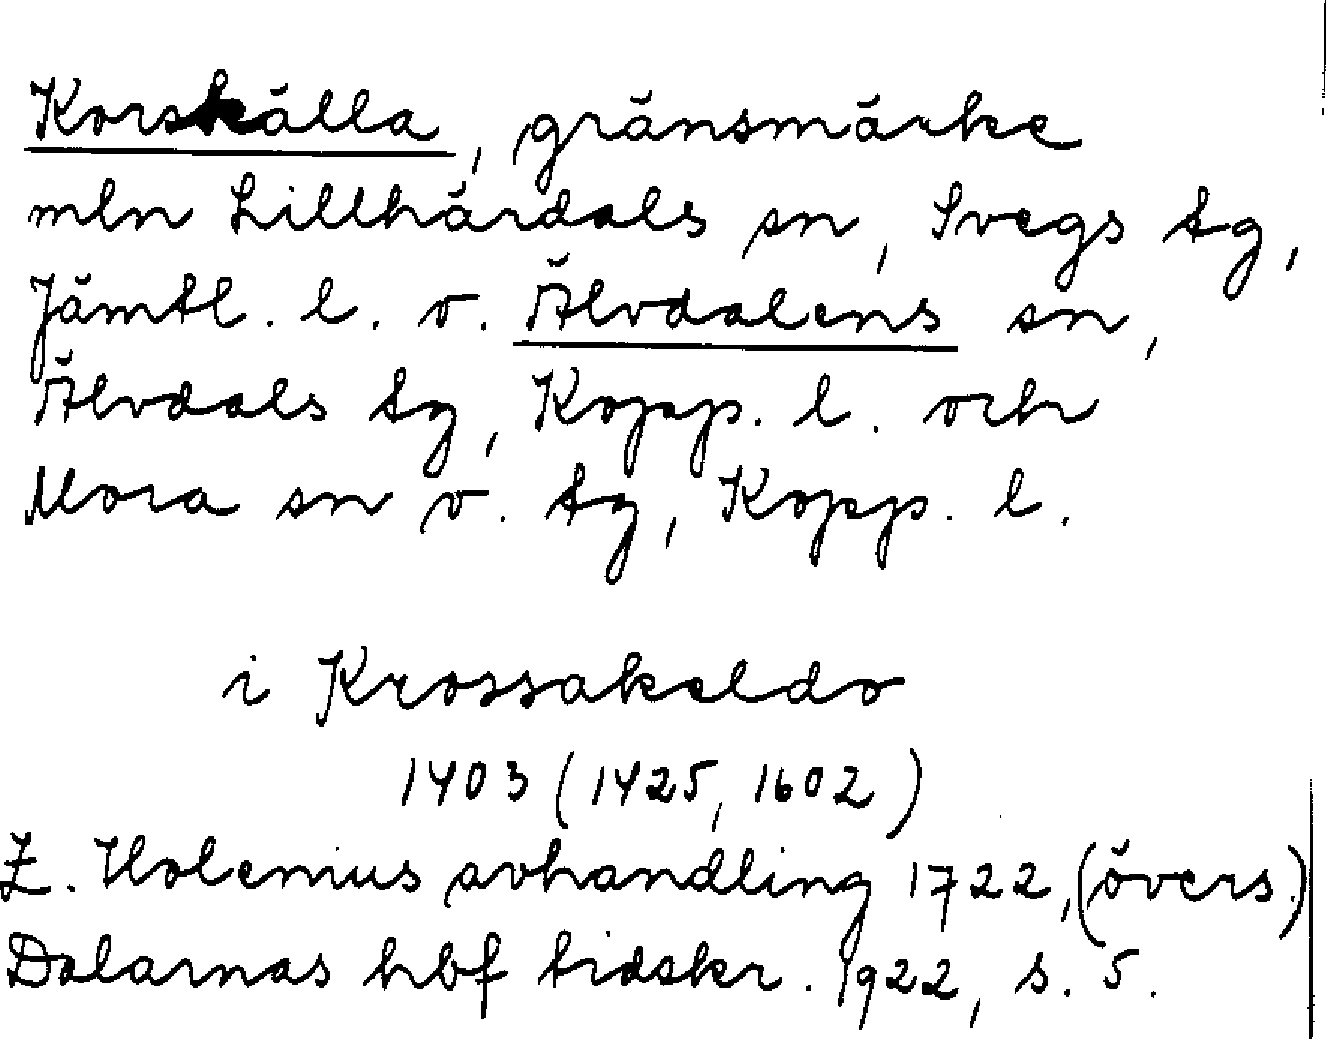 Korskälla, gränsmärke
mln Lillhärdals sn, Svegs tg,
Jämtl. l. o. Älvdalens sn,
Älvdals tg, Kopp. l. och
Mora sn o. tg, Kopp. l.
i Krossakeldo
1403 (1425, 1602)
Z. Holenius avhandling 1722, (övers.)
Dalarnas hbf tidskr. 1922, s. 5.